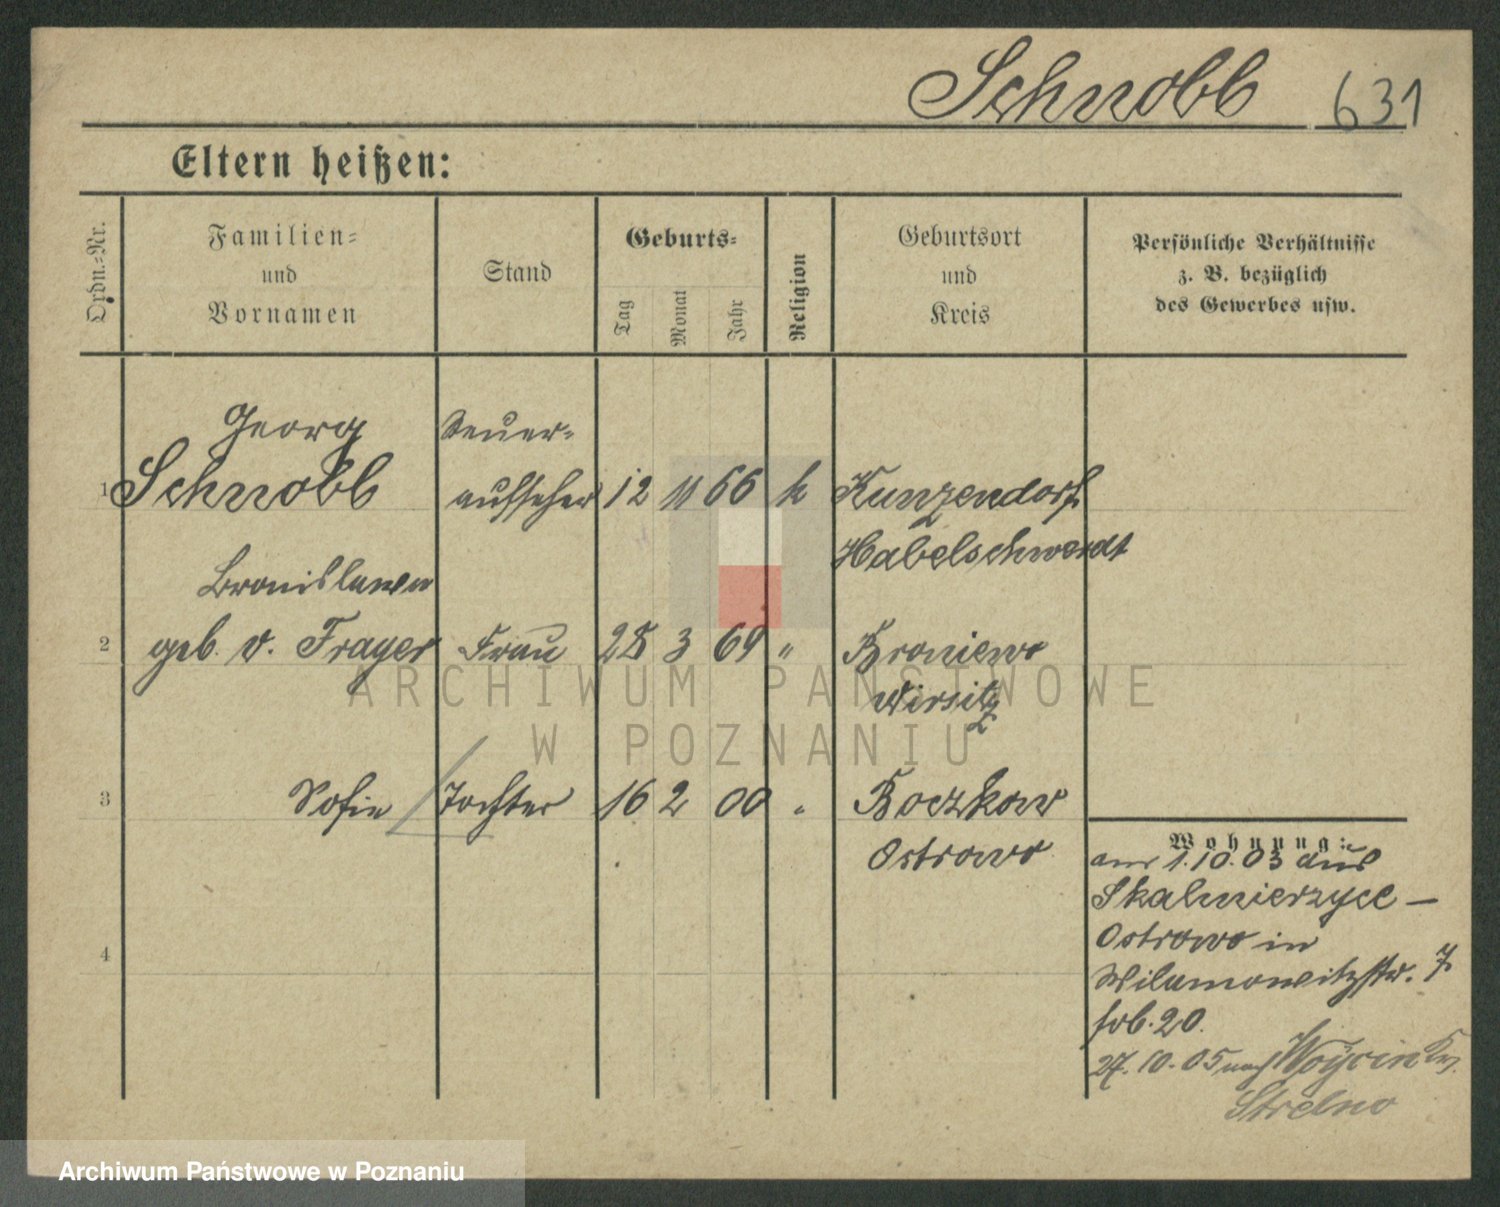 Schnobb 631
Eltern heißen:
Ordn.-Nr.
Familien-
und
Vornamen
Stand
Geburts-
Tag
Monat
Jahr
Religion
Geburtsort
und
Kreis
Persönliche Verhältnisse
z. B. bezüglich
des Gewerbes usw.
Georg Steuer-
1 Schnobb aufseher 12 11 66 k Kunzendorf
Habelschwerdt
Bronislawa
2 geb. v. Frager Frau 28 3 69 " Broniewo
Wirsitz
3 Sofie Tochter 16 2 00 " Boczkow
Ostrowo
Wohnung:
am 1.10.03 aus
Skalmierzyce –
Ostrowo in
Wilamowitzstr. 7
4
20.
27.10.05 nach Woycin Kr.
Strelno
ARCHIWUM PAŃSTWOWE
W POZNANIU
Archiwum Państwowe w Poznaniu